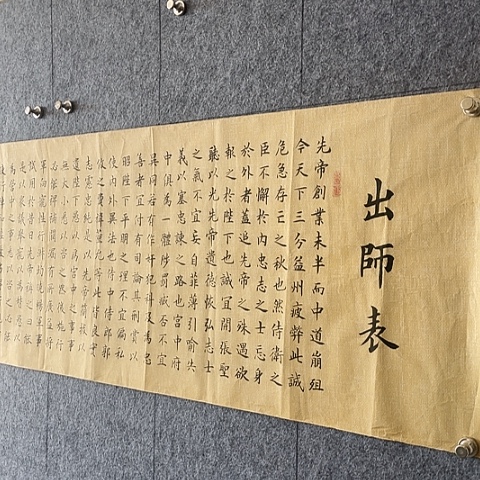 出師表
先帝創業未半而中道崩殂
今天下三分益州疲弊此誠
危急存亡之秋也然侍衛之
臣不懈於內忠志之士忘身
於外者蓋追先帝之殊遇欲
報之於陛下也誠宜開張聖
聽以光先帝遺德恢弘志士
之氣不宜妄自菲薄引喻失
義以塞忠諫之路也宮中府
中俱為一體陟罰臧否不宜
異同若有作奸犯科及為忠
善者宜付有司論其刑賞以
昭陛下平明之理不宜偏私
使內外異法也侍中侍郎郭
攸之費禕董允等此皆良實
志慮忠純是以先帝簡拔以
遺陛下愚以為宮中之事事
無大小悉以咨之然後施行
必能裨補闕漏有所廣益將
軍向寵性行淑均曉暢軍事
試用於昔日先帝稱之曰能
是以眾議舉寵以為督愚以
為營中之事悉以咨之必能